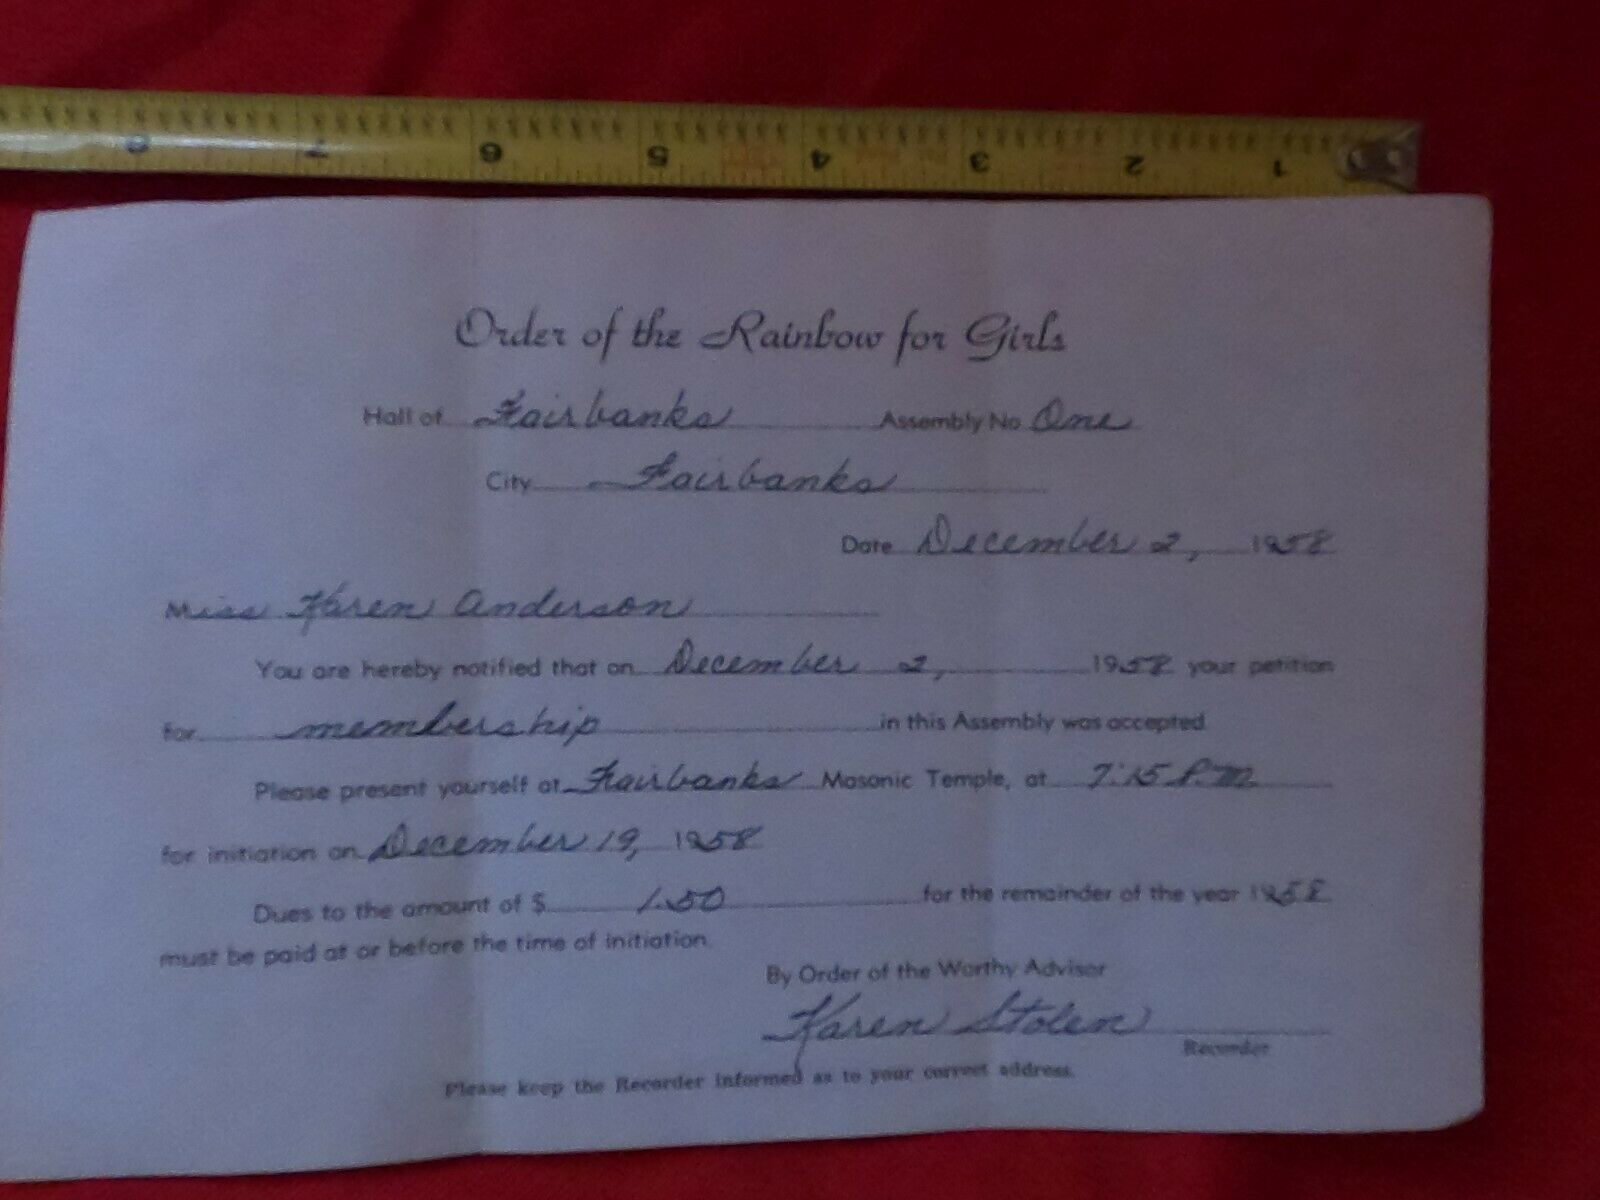 8 7 6 5 4 3 2 1
Order of the Rainbow for Girls
Hall of Fairbanks Assembly No. One
City Fairbanks
Date December 2, 1958
Miss Karen Anderson
You are hereby notified that on December 2, 1958 your petition
for membership in this Assembly was accepted.
Please present yourself at Fairbanks Masonic Temple, at 7:15 P.M.
for initiation on December 19, 1958
Dues to the amount of $ 1.50 for the remainder of the year 1958
must be paid at or before the time of initiation.
By Order of the Worthy Advisor
Karen Stolen
Recorder
Please keep the Recorder informed as to your correct address.